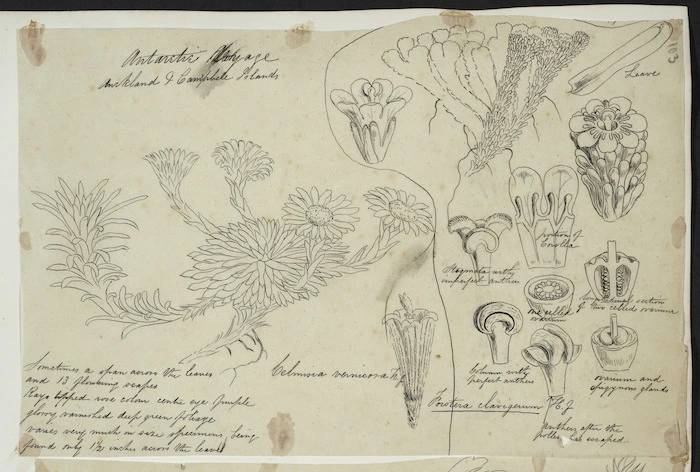 Antarctic Voyage
Auckland & Campbell Islands
103
Leave
portion of
Corolla
Stigmata with
imperfect anther
one celled
ovarium
longitudinal section
of two celled ovarium
Column with
perfect anthers
ovarium and
epigynous glands
Celmisia vernicosa H.f.
Forstera clavigerum H.f.
Anthers after the
pollen has escaped
Sometimes a span across the leaves
and 13 flowering scapes
Rays tipped rose colour centre eye purple
glossy varnished deep green foliage
varies very much in size specimens being
found only 1½ inches across the leaves